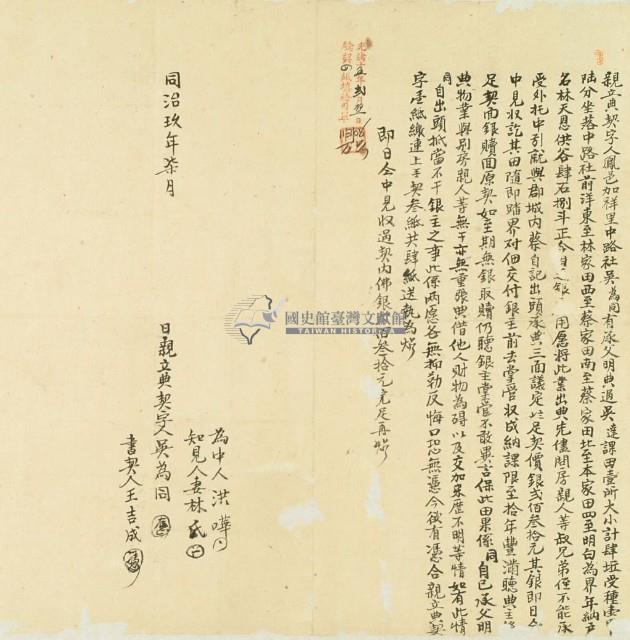 親立典契字人鳳邑加祥里中路社吳為同有承父明典過吳達課田壹所大小計肆坵受種壹
陸分坐落中路社前洋東至林家田西至蔡家田南至蔡家田北至本家田四至明白為界年納戶
名林天恩供谷肆石捌斗正今因乏銀 用愿將此業出典先儘問房親人等叔兄弟侄不能承
受外托中引就與郡城內蔡自記出頭承典三面議定 足契價銀弍佰叁拾元其銀即日仝
中見收訖其田隨即踏界对佃交付銀主前去掌管收成納課限至拾年豐滿聽典主
足契面銀贖回原契如至期無銀取贖仍聽銀主掌管不敢異言保此田果係同自己承父明
典物業與別房親人等無干亦無重張典借他人財物為碍以及交加來歷不明等情如有此情
同自出頭抵當不干銀主之事此係兩愿各無抑勒反悔口恐無憑今欲有憑合親立典契
字壹紙繳連上手契叁紙共肆紙送執為炤
光緒十五年弍月 日
驗錄四紙
即日仝中見收過契內佛銀 佰叁拾元完足再炤
國史館臺灣文獻館
TAIWAN HISTORICA
為中人洪 嘩
知見人妻林氏
日親立典契字人吳為同
書契人王吉成
同治玖年柒月